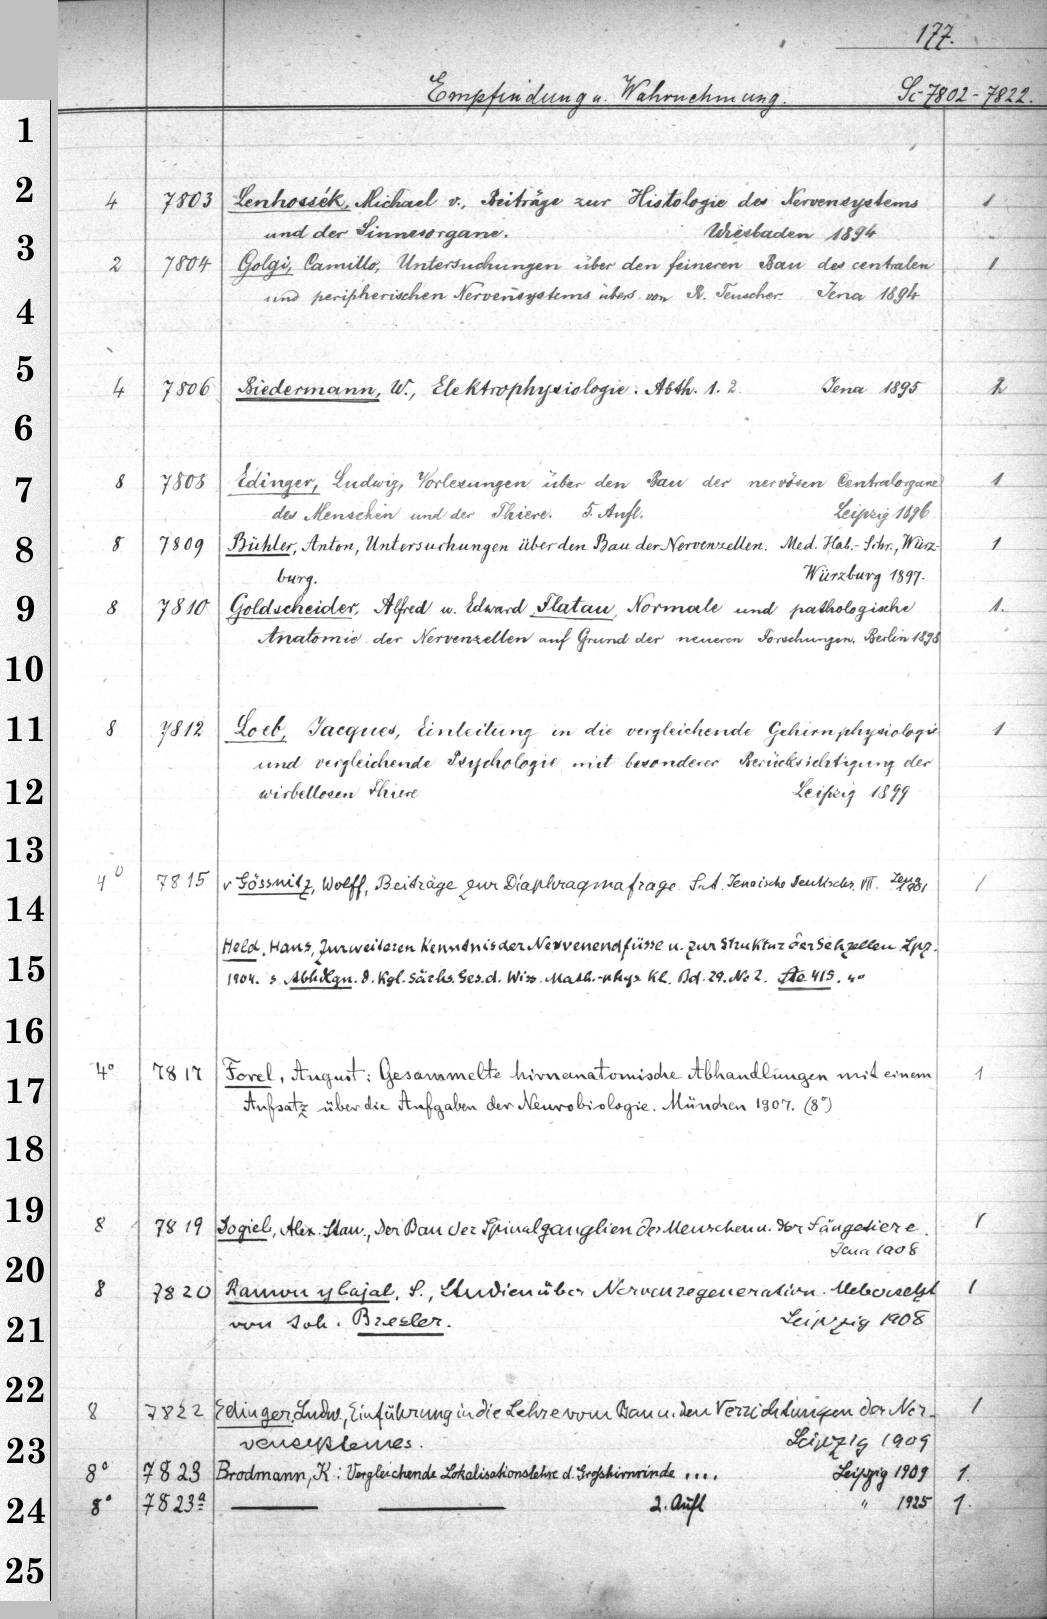 177.
Empfindung u. Wahrnehmung. Sc-7802-7822.
1
2
3
4
5
6
7
8
9
10
11
12
13
14
15
16
17
18
19
20
21
22
23
24
25
4 7803 Lenhossék, Michael v., Beiträge zur Histologie des Nervensystems 1
und der Sinnesorgane. Wiesbaden 1894
2 7804 Golgi, Camillo, Untersuchungen über den feineren Bau des centralen 1
und peripherischen Nervensystems übers. von R. Teuscher. Jena 1894
4 7806 Biedermann, W., Elektrophysiologie. Abth. 1. 2. Jena 1895 2
8 7808 Edinger, Ludwig, Vorlesungen über den Bau der nervösen Centralorgane 1
des Menschen und der Thiere. 5. Aufl. Leipzig 1896
8 7809 Bühler, Anton, Untersuchungen über den Bau der Nervenzellen. Med. Hab.-Schr., Würz- 1
burg. Würzburg 1897.
8 7810 Goldscheider, Alfred u. Edward Flatau, Normale und pathologische 1.
Anatomie der Nervenzellen auf Grund der neueren Forschungen. Berlin 1898
8 7812 Loeb, Jacques, Einleitung in die vergleichende Gehirnphysiologie 1
und vergleichende Psychologie mit besonderer Berücksichtigung der
wirbellosen Thiere Leipzig 1899
4° 7815 v Gössnitz, Wolff, Beiträge zur Diaphragmafrage. S.A. Jenaische Denkschr. VII. Jena 1901 1
Held, Hans, Zur weiteren Kenntnis der Nervenendfüsse u. zur Struktur der Sehzellen Lpz.
1904. s. Abhdlgn. d. Kgl. Sächs. Ges. d. Wiss. Math.-phys Kl. Bd. 29. No 2. 415. 4°
4° 7817 Forel, August: Gesammelte hirnanatomische Abhandlungen mit einem 1
Aufsatz über die Aufgaben der Neurobiologie. München 1907. (8°)
8 7819 Dogiel, Alex. Stan., Der Bau der Spinalganglien des Menschen u. der Säugetiere. 1
Jena 1908
8 7820 Ramon y Cajal, S., Studien über Nervenregeneration. Uebersetzt 1
von Joh. Bresler. Leipzig 1908
8 7822 Edinger, Ludw., Einführung in die Lehre vom Bau u. den Verrichtungen des Ner- 1
vensystemes. Leipzig 1909
8° 7823 Brodmann, K.: Vergleichende Lokalisationslehre d. Grosshirnrinde .... Leipzig 1909 1.
8° 7823a — — 2. Aufl " 1925 1.